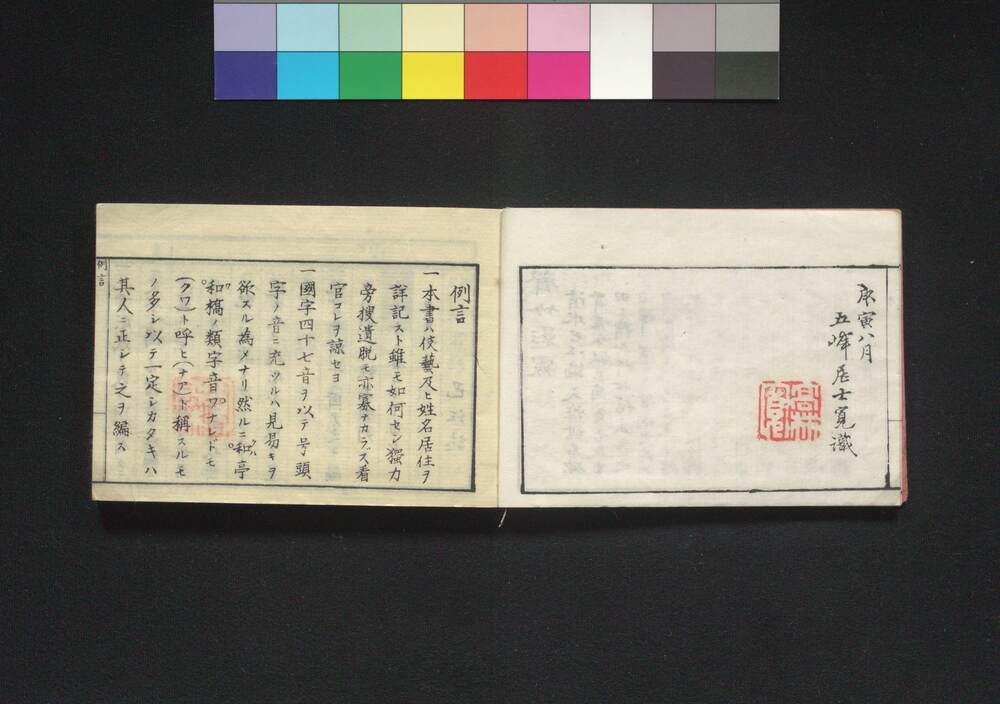 庚寅八月
五峰居士寛識
例言
一本書ハ伎藝及ヒ姓名居住ヲ
詳記スト雖モ如何セン獨力
旁搜遺脱モ亦寡ナカラズ看
官コレヲ諒セヨ
一國字四十七音ヲ以テ号頭
字ノ音ニ充ツルハ見易キヲ
欲スル為メナリ然ルニ和亭
和橋ノ類字音ワナレドモ
(クワ)ト呼ヒ(ナアド稱スルモ
ノ多シ以テ一定シカタキハ
其人ニ正シテ之ヲ編ス
例言